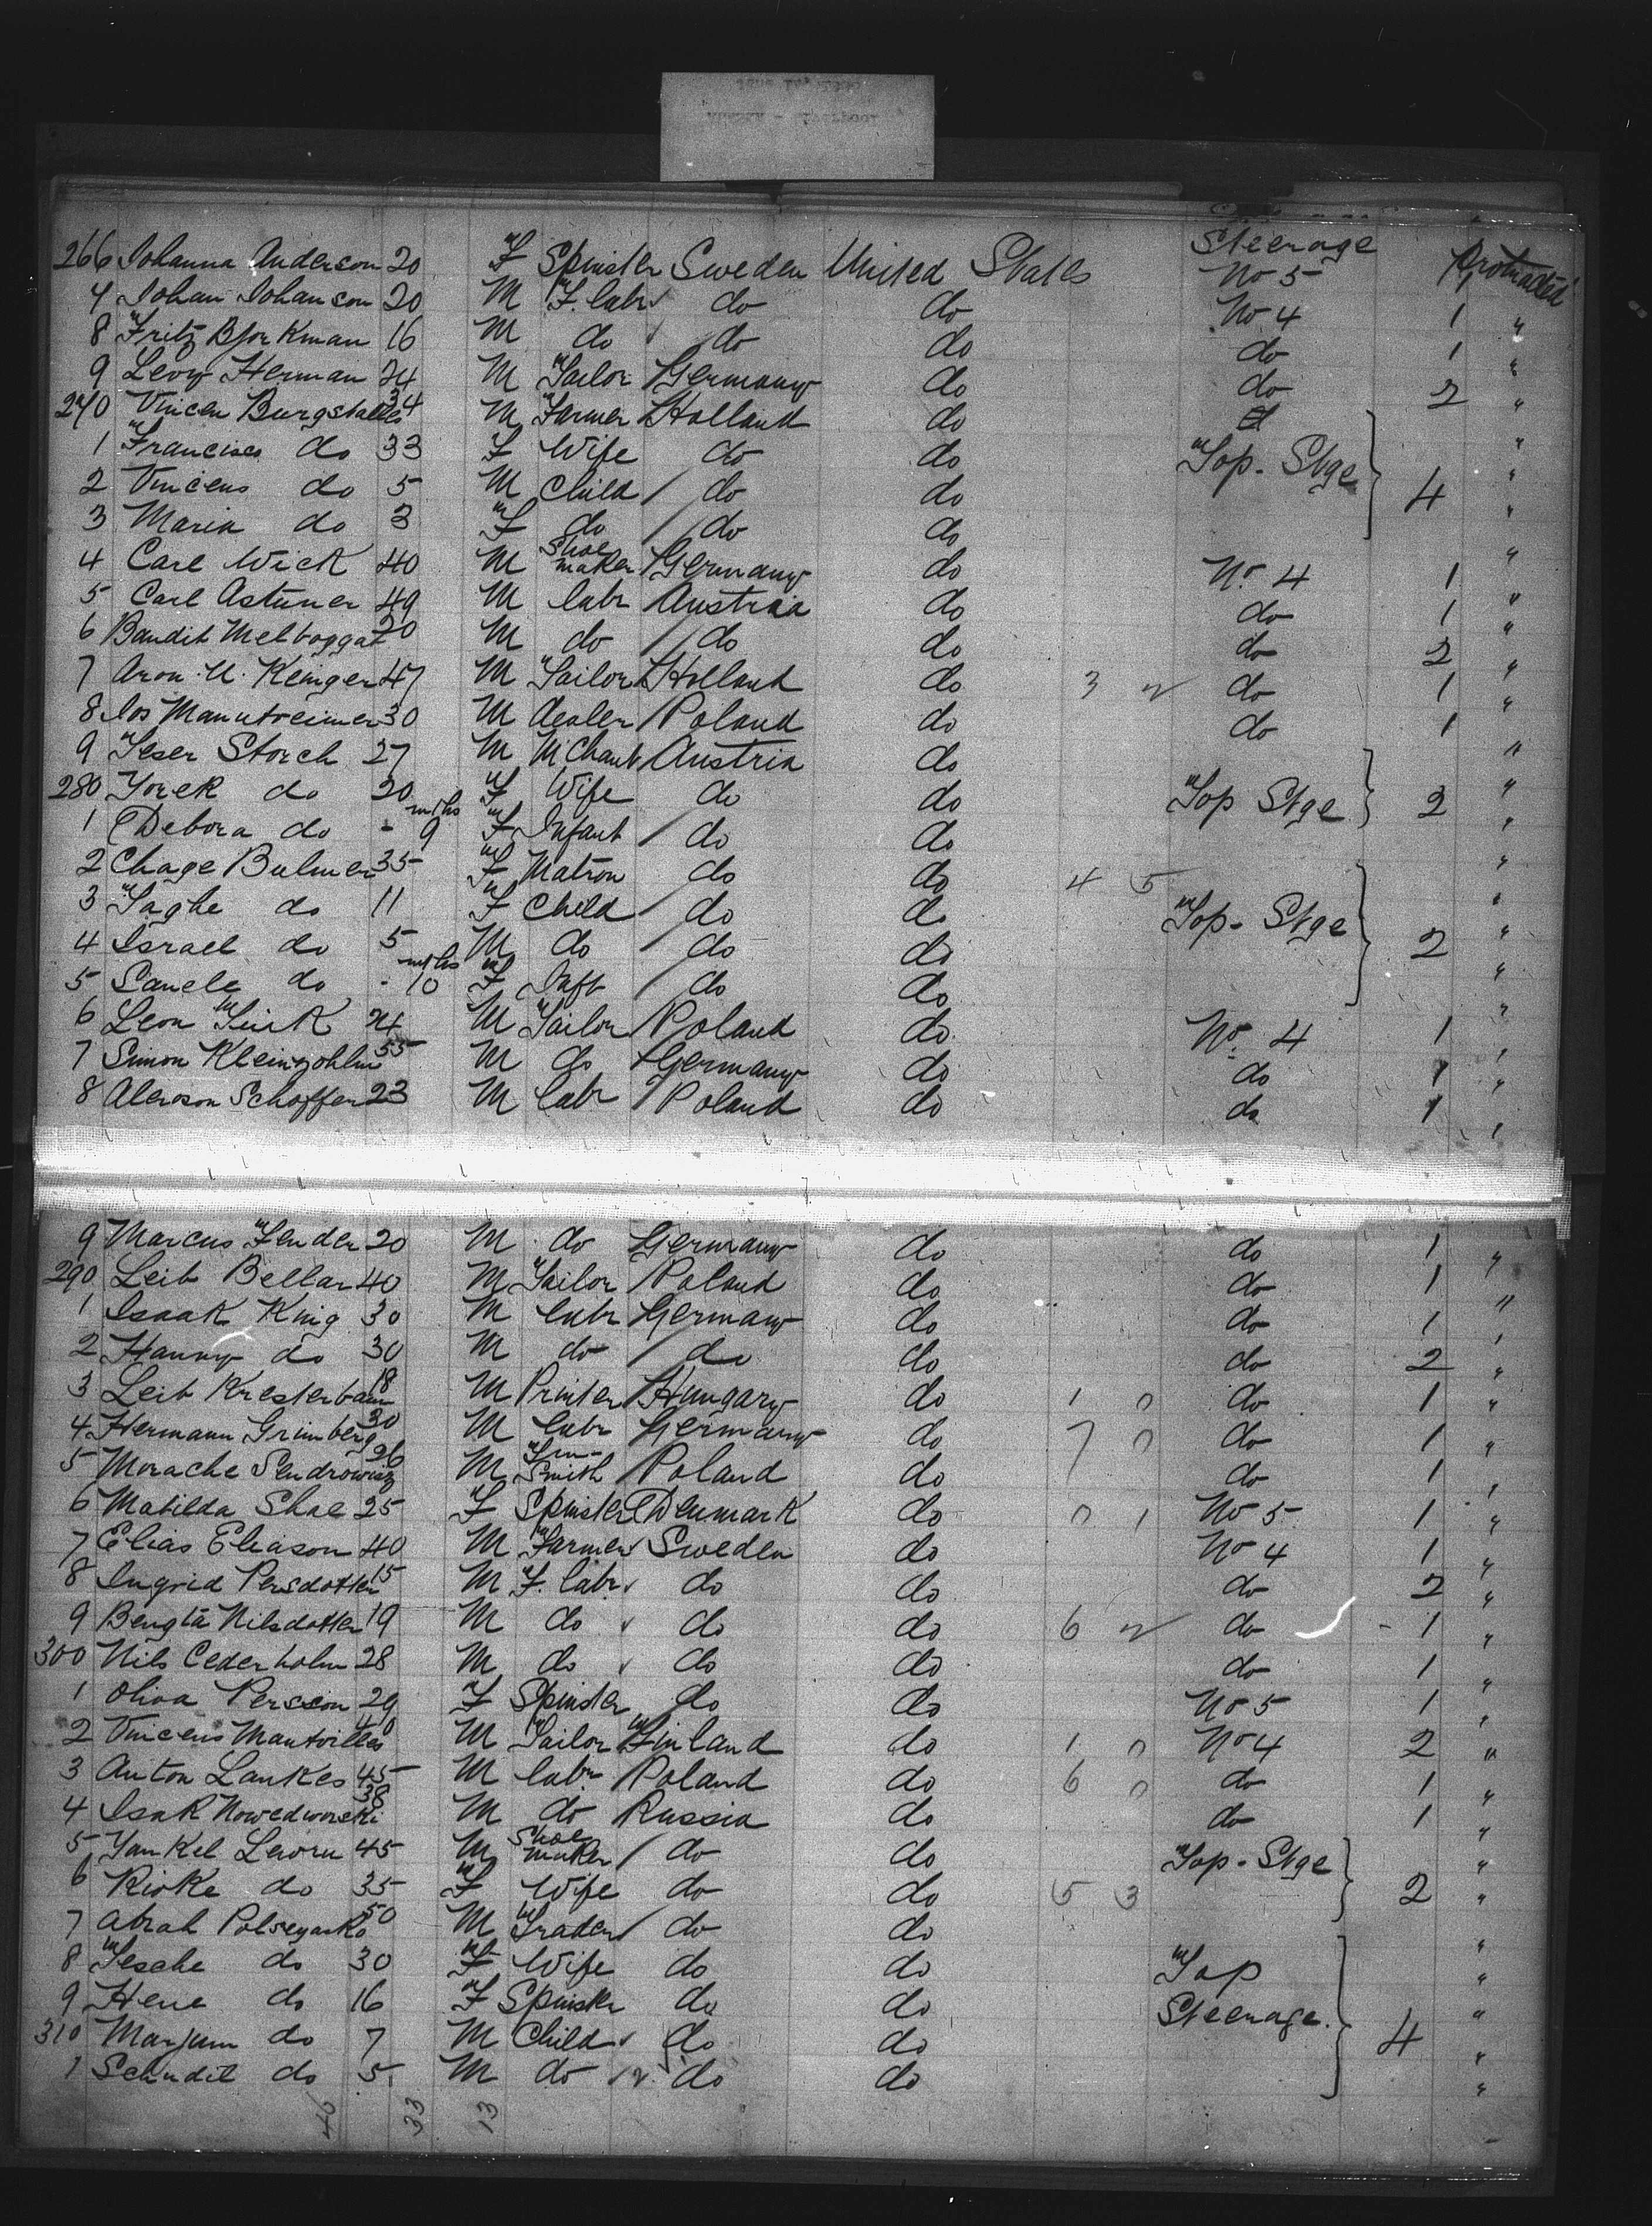 266 Johanna Anderson 20 F Spinster Sweden United States Steerage No 5 Protracted
7 Johan Johanson 20 M F. labr do do No 4 1 "
8 Fritz Bjorkman 16 M do do do do 1 "
9 Levy Herman 24 M Tailor Germany do do 2 "
270 Vincen Burgstaller 34 M Farmer Holland do "
1 Francisca do 33 F Wife do do Top. Stge "
2 Vincens do 5 M Child do do 4 "
3 Maria do 3 F do do do "
4 Carl Wick 40 M Shoe maker Germany do No 4 1 "
5 Carl Astuner 49 M labr Austria do do 1 "
6 Bandit Melboggat 20 M do do do do 2 "
7 Aron U. Keniger 47 M Tailor Holland do 3 2 do 1 "
8 Jos Manutreimer 30 M dealer Poland do do 1 "
9 Teser Storch 27 M Mchant Austria do "
280 Jorek do 20 F Wife do do Top Stge 2 "
1 Debora do - 9 mths F Infant do do "
2 Chage Bulmer 35 F Matron do do 4 5 "
3 Taghe do 11 F Child do do Top. Stge "
4 Israel do 5 M do do do 2 "
5 Sanele do - 10 mths F Inft do do "
6 Leon Turk 24 M Tailor Poland do No. 4 1 "
7 Simon Kleinzohlm 55 M do Germany do do 1 "
8 Aleroson Schaffer 23 M labr Poland do do 1 "
9 Marcus Fender 20 M do Germany do do 1 "
290 Leib Bellar 40 M Tailor Poland do do 1 "
1 Isaak King 30 M labr Germany do do 1 "
2 Hanny do 30 M do do do do 2 "
3 Leib Kresterbaum 18 M Printer Hungary do 1 0 do 1 "
4 Hermann Grimberg 30 M labr Germany do 7 0 do 1 "
5 Morache Sendrowicz 26 M Tin-Smith Poland do do 1 "
6 Matilda Shae 25 F Spinster Denmark do 0 1 No 5 1 "
7 Elias Eliason 40 M Farmer Sweden do No 4 1 "
8 Ingrid Persdotter 15 M F. labr do do do 2 "
9 Bengta Nilsdotter 19 M do do do 6 2 do 1 "
300 Nils Cederholm 28 M do do do do 1 "
1 Oliva Persson 29 F Spinster do do No 5 1 "
2 Vincens Mantvilles 40 M Tailor Finland do 1 0 No 4 2 "
3 Anton Lankes 45 M labr Poland do 6 0 do 1 "
4 Isak Nowedworski 38 M do Russia do do 1 "
5 Yankel Leworu 45 M Shoe maker do do Top. Stge "
6 Rioke do 35 F Wife do do 5 3 2 "
7 Abrah Polseyanko 50 M Trader do do "
8 Tesche do 30 F Wife do do Top "
9 Hene do 16 F Spinster do do Steerage. "
310 Marjum do 7 M Child do do 4 "
1 Schudit do 5 M do do do "
40 33 13